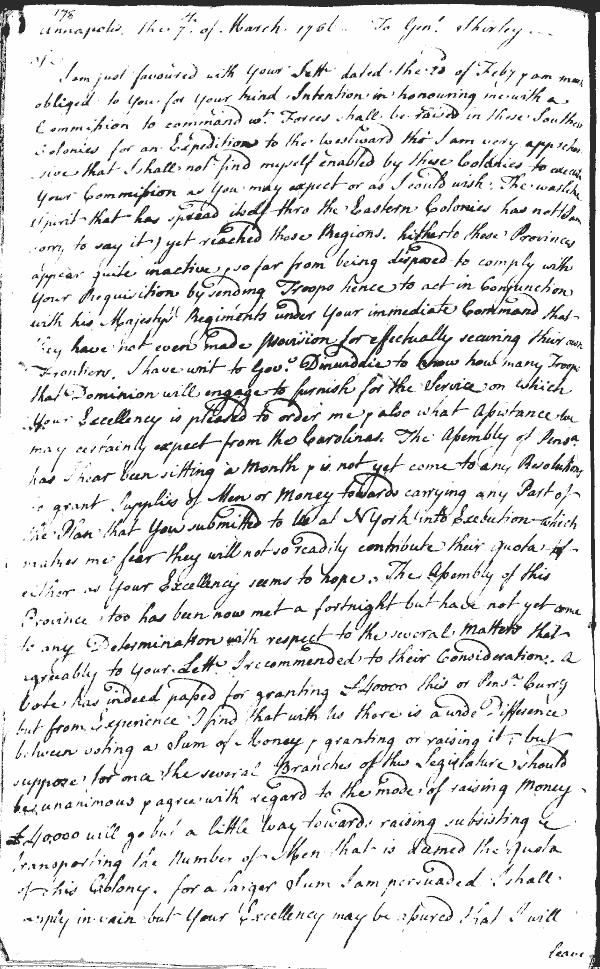 178
Annapolis. the 7th. of March 1756 To Genl. Shirley
Sr.
I am just favoured with Your Lettr dated the 23 of Feby & am much
obliged to You for Your kind Intention in honouring me with a
Commission to command wt. Forces shall be raised in these Southern
Colonies for an Expedition to the Westward tho I am very apprehen
sive that I shall not find myself enabled by these Colonies to execute
Your Commission as You may expect or as I could wish. The warlike
Spirit that has spread itself thro the Eastern Colonies has not (I am
sorry to say it) yet reached those Regions. hitherto these Provinces
appear quite inactive & so far from being disposed to comply with
Your Requisition by sending Troops hence to act in Conjunction
with his Majesty's Regiments under Your immediate Command that
they have not even made provision for effectually securing their own
Frontiers. I have writ to Govr. Dinwiddie to know how many Troops
that Dominion will engage to furnish for the Service on which
Your Excellency is pleased to order me, & also what Assistance we
may certainly expect from the Carolinas. The Assembly of Pensa
has I hear been sitting a Month & is not yet come to any Resolutions
to grant Supplies of Men or Money towards carrying any Part of
the Plan that You submitted to Us at NYork into Execution which
makes me fear they will not so readily contribute their quota of
either as Your Excellency seems to hope. The Assembly of this
Province too has been now met a fortnight but have not yet come
to any Determination with respect to the several Matters that
agreably to Your Lettr I recommended to their Consideration. A
Vote has indeed passed for granting £40000 this or Pensa. Curry
but from Experience I find that with Us there is a wide Difference
between voting a Sum of Money & granting or raising it; but
suppose for once the several Branches of this Legislature should
be unanimous & agree with regard to the mode of raising Money
£40,000 will go but a little Way towards raising subsisting &
transporting the Number of Men that is deemed the quota
of this Colony. for a larger Sum I am persuaded I shall
apply in vain but Your Excellency may be assured that I will
leave